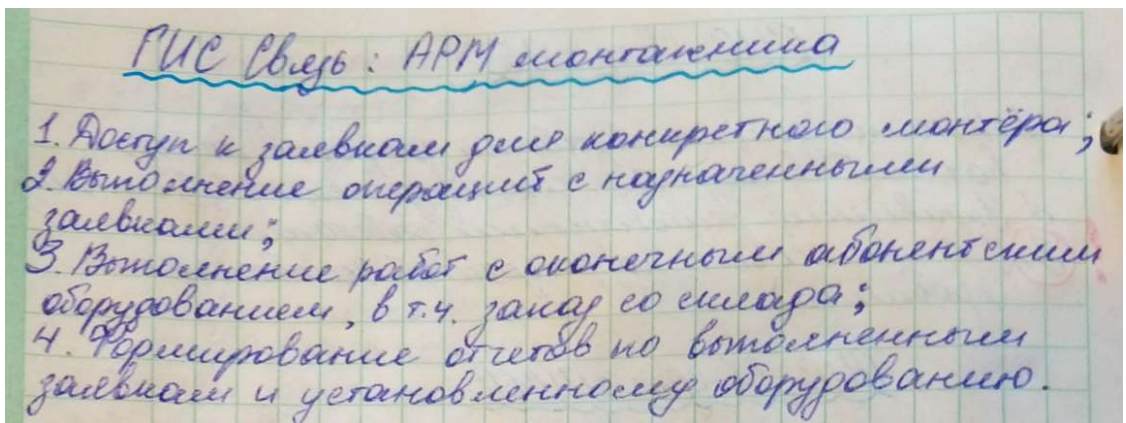 ГИС Связь: АРМ монтажника
1. Доступ к заявкам для конкретного монтёра;
2. Выполнение операций с назначенными
заявками;
3. Выполнение работ с оконечным абонентским
оборудованием, в т.ч. заказ со склада;
4. Формирование отчетов по выполненным
заявкам и установленному оборудованию.